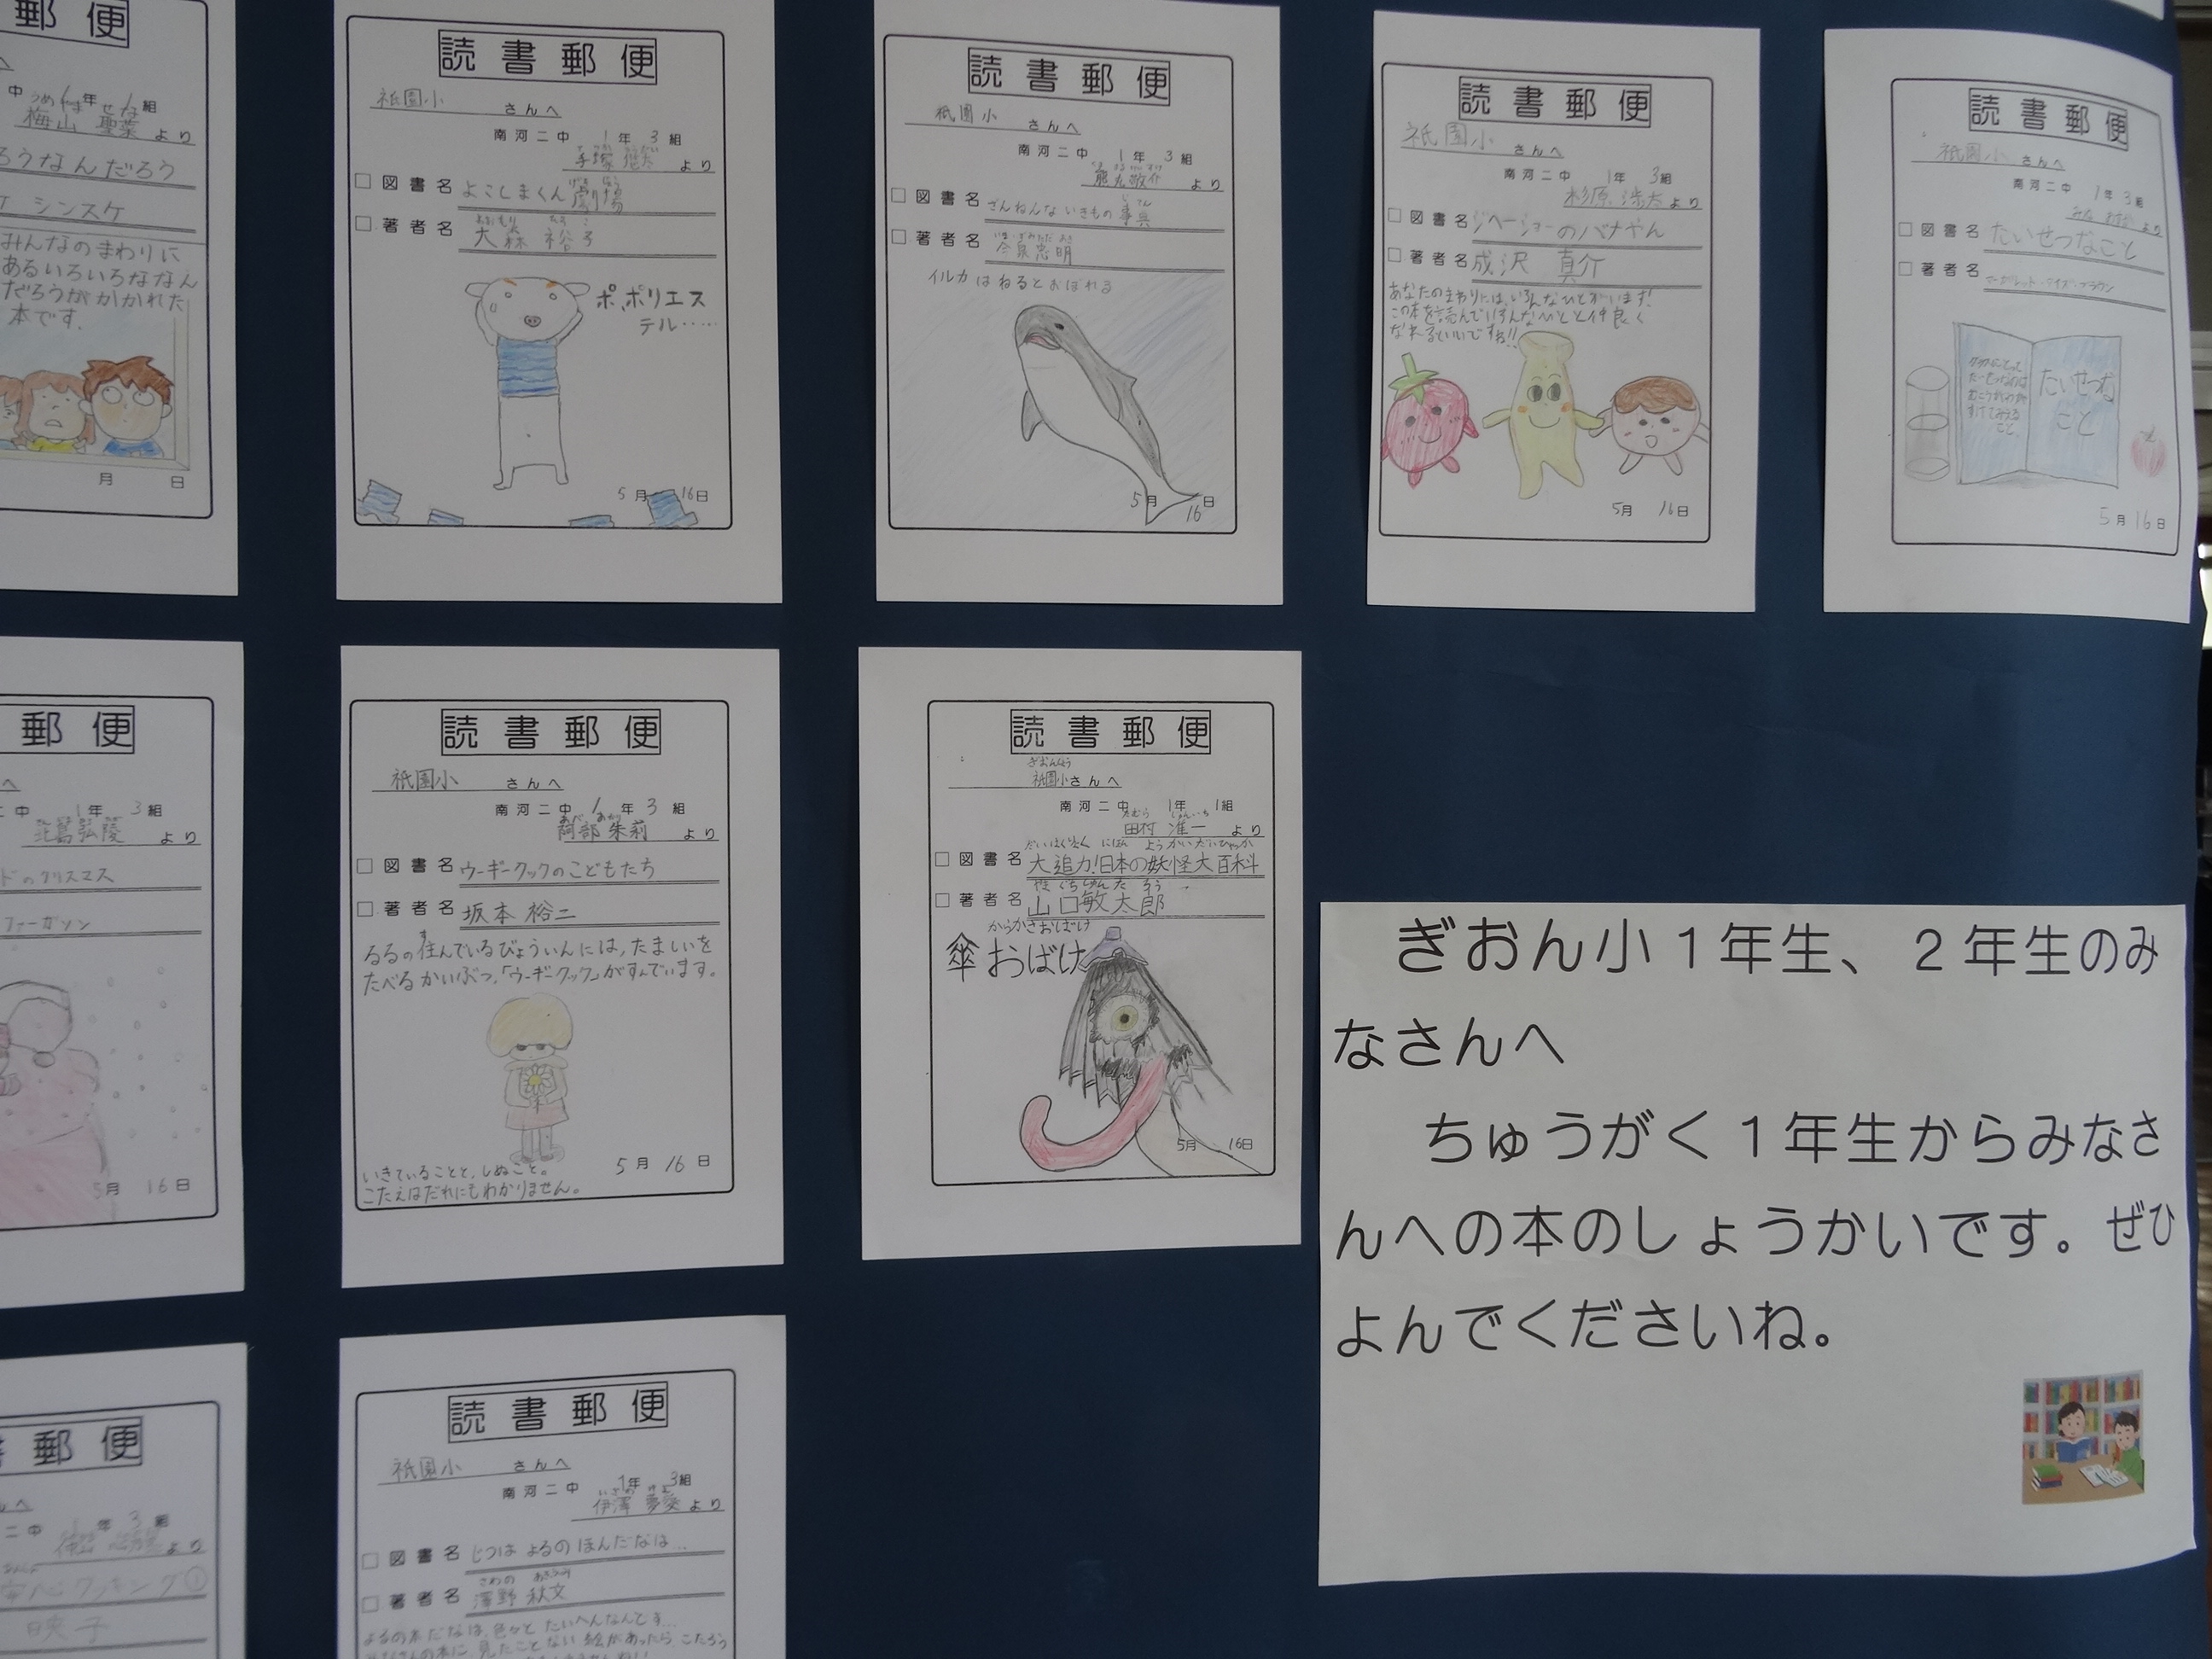 郵便
中 年 組
梅山 聖菜 より
ろうなんだろう
シンスケ
みんなのまわりに
あるいろいろななん
だろうがかかれた
本です。
月 日
読書郵便
祇園小 さんへ
南河二中 1年 3組
手塚 より
□図書名 よこしまくん劇場
□著者名 大森 裕子
ポ、ポリエス
テル……
5月 16日
読書郵便
祇園小 さんへ
南河二中 1年 3組
熊丸敬介 より
□図書名 ざんねんないきもの事典
□著者名 今泉忠明
イルカはねるとおぼれる
5月 16日
読書郵便
祇園小 さんへ
南河二中 1年 3組
杉原 より
□図書名 のバナやん
□著者名 成沢 真介
あなたのまわりには、いろんなひとがいます!
この本を読んでいろんなひとと仲良く
なれるといいですね!!
5月 16日
読書郵便
祇園小 さんへ
南河二中 1年 3組
より
□図書名 たいせつなこと
□著者名 マーガレット・ワイズ・ブラウン
たいせつな
こと
5月 16日
郵便
へ
二中 1年 3組
弘陵 より
のクリスマス
ファーガソン
5月 16日
読書郵便
祇園小 さんへ
南河二中 1年 3組
阿部 朱莉 より
□図書名 ウーギークックのこどもたち
□著者名 坂本 裕二
るるの住んでいるびょういんには、たましいを
たべるかいぶつ、「ウーギークック」がすんでいます。
いきていることと、しぬこと。
こたえはだれにもわかりません。
5月 16日
読書郵便
ぎおんしょう
祇園小さんへ
南河二中 1年 1組
たむら じゅんいち
田村 准一 より
□図書名 大迫力!日本の妖怪大百科
□著者名 山口敏太郎
からかさおばけ
傘おばけ
5月 16日
ぎおん小1年生、2年生のみ
なさんへ
ちゅうがく1年生からみなさ
んへの本のしょうかいです。ぜひ
よんでくださいね。
書郵便
二中 1年 3組
より
クッキング①
映子
読書郵便
祇園小 さんへ
南河二中 1年 3組
伊澤 夢愛 より
□図書名 じつは よるのほんだなは…
□著者名 澤野 秋文
よるの本だなは、色々とたいへんなんです…